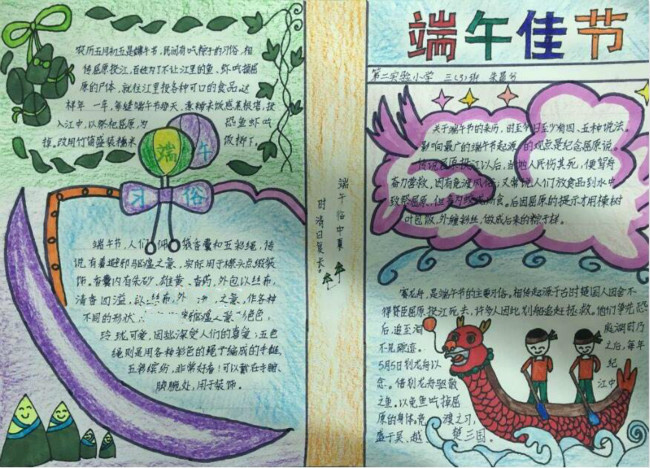 农历五月初五是端午节,民间有吃粽子的习俗,相
传屈原投江,百姓为了不让江里的鱼、虾吃掉屈
原的尸体,就往江里投各种可口的食品这
样年一年,每逢端午节
入江中,以祭祀屈原,为恐鱼虾吃
掉,改用竹筒盛装糯米饭掷下。
端午
习俗
端午节,人们佩戴香囊和五彩绳,传
说有着避邪驱瘟之意,实际用于襟头点缀装
饰。香囊内有朱砂、雄黄、香药,外包以丝布,
清香四溢,以丝布,外之,作各种
不同的形状,
玲珑可爱,因此深受人们的喜爱;五色
绳则是用各种彩色的绳子编成的手链,
五彩缤纷,非常好看!可以戴在手腕、
脚腕处,用于装饰。
端午临中夏
时清日复长
端午佳节
第二实验小学 三(5)班
关于端午节的来历,时至今日至少有四、五种说法。
影响最广的端午节起源的观点是纪念屈原说。
传说屈原投江以后,当地人民伤其死,便驾舟
奋力营救,因有竞渡风俗;又常说人们放食品到水中
致祭屈原,但多为蛟龙所食。后因屈原的提示才用楝树
叶包饭,外缠彩丝,做成后来的粽子样。
赛龙舟,是端午节的主要习俗。相传起源于古时楚国人因舍不
得贤臣屈原投江死去,许多人因此划船追赶拯救。他们争先恐
后,追至洞庭湖时
不见踪迹。之后,每年
5月5日划龙舟以纪
念。借划龙舟驱散江中
之鱼,以免鱼吃掉屈
原的身体。竞渡之习,
盛于吴、越、楚三国。